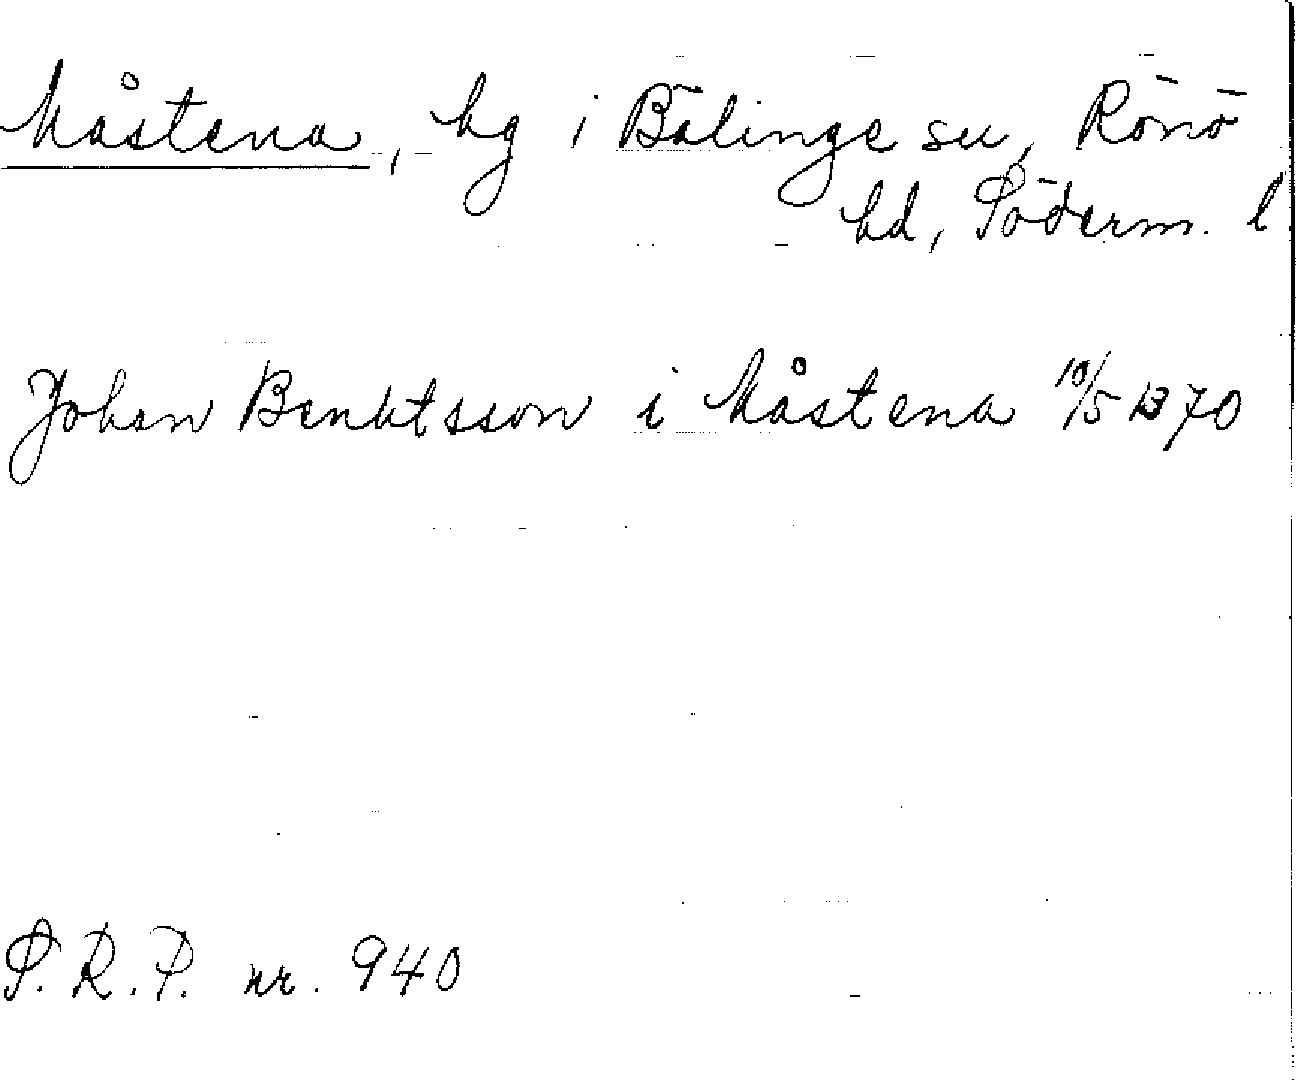 Måstena, hg i Bälinge sn, Rönö
hd, Söderm. l
Johan Benktsson i Måstena 10/5 1370
S.R.P. nr. 940